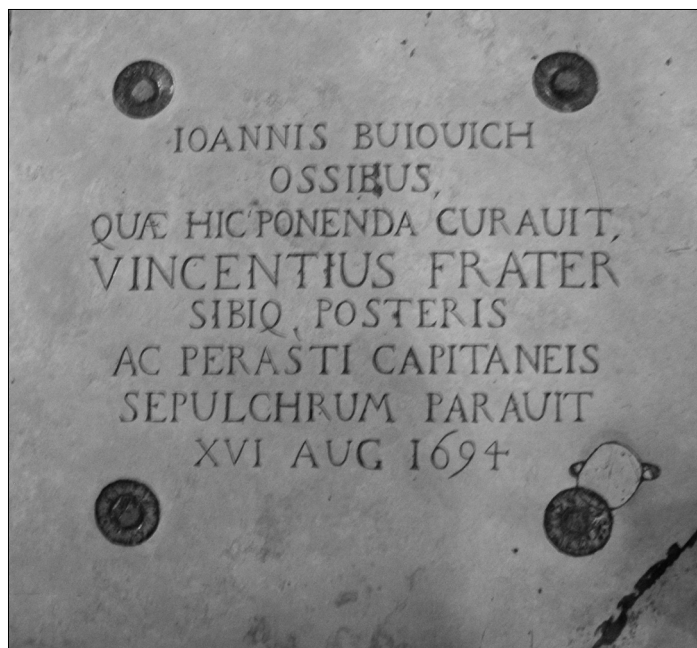 IOANNIS BUIOUICH
OSSIBUS,
QUÆ HIC PONENDA CURAUIT,
VINCENTIUS FRATER
SIBIQ, POSTERIS
AC PERASTI CAPITANEIS
SEPULCHRUM PARAUIT
XVI AUG 1694